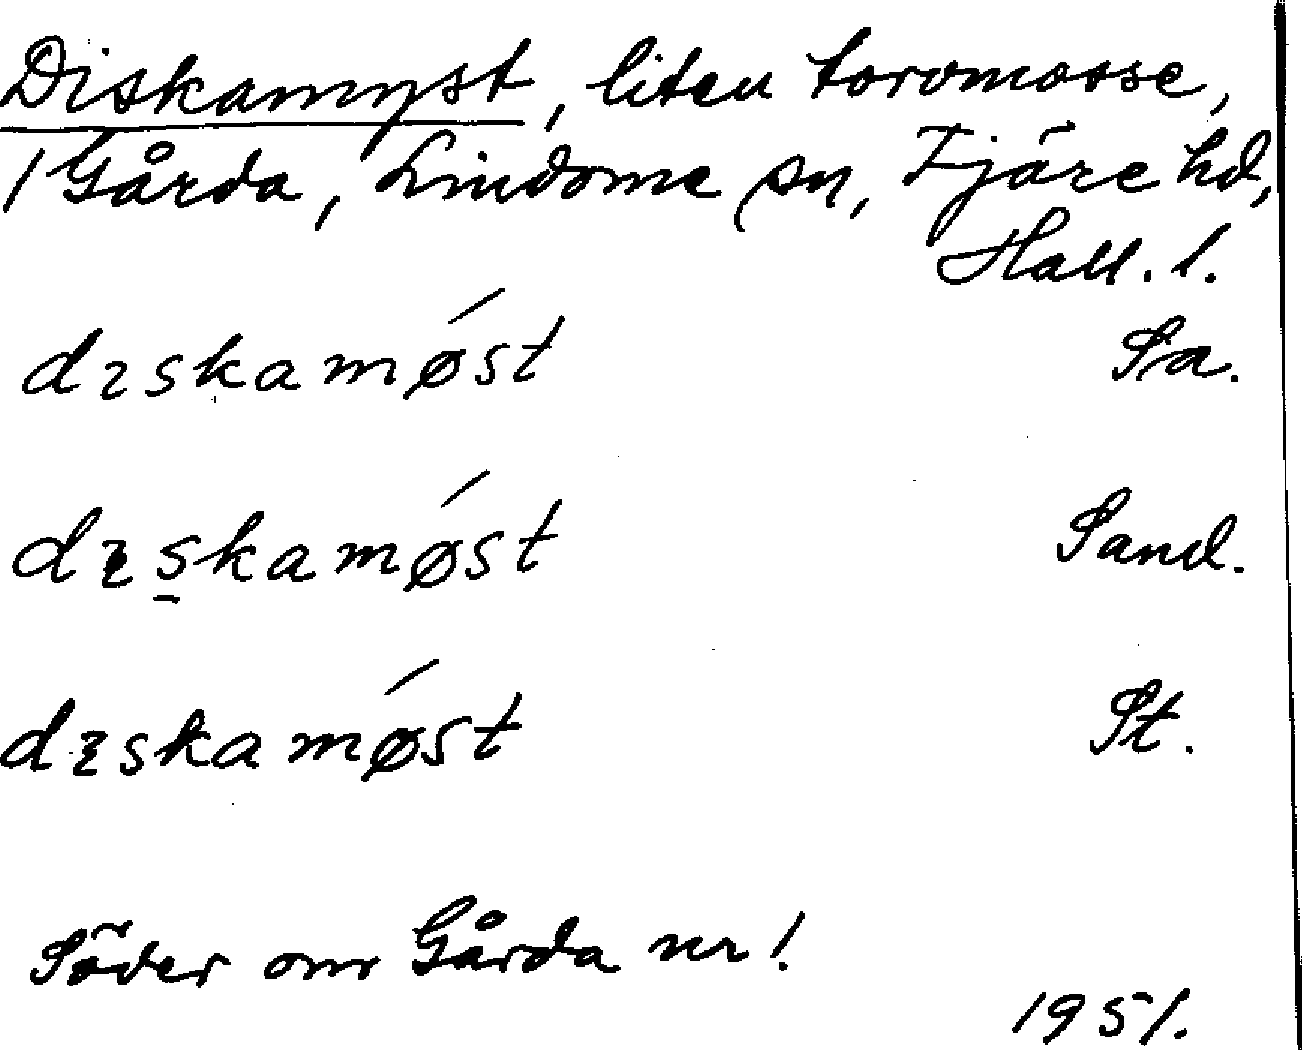 Diskamyst, liten torvmosse,
1 Gårda, Lindome sn, Fjäre hd,
Hall. l.
dɪskamǿst Sa.
dɪskamǿst Sand.
dɪskamǿst St.
Söder om Gårda nr 1.
1951.